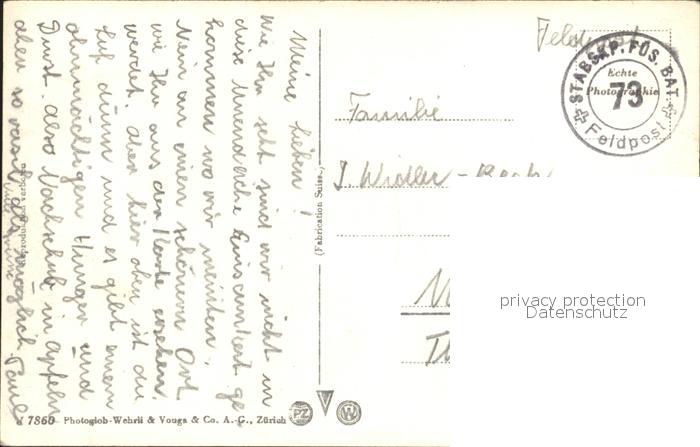 Meine Lieben!
Wie Ihr seht sind wir nicht in
diese unendliche Einsamkeit ge-
kommen wo wir meinten.
Nein an einen schönen Ort
wie Ihr aus der Karte ersehen
werdet. Aber hier oben ist die
Luft dünn und es gibt einen
ohnmächtigen Hunger und
Durst. Also Nachschub in Äpfeln
aber so rasch als möglich. Paul
Feldpost
Familie
J. Widler-
Echte
Photographie
STABSKP. FÜS. BAT.
73
Feldpost
(Fabrication Suisse.)
privacy protection
Datenschutz
7860 Photoglob-Wehrli & Vouga & Co. A.-G., Zürich
PZ
W